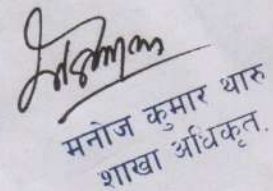 मनोज कुमार थारु
शाखा अधिकृत.